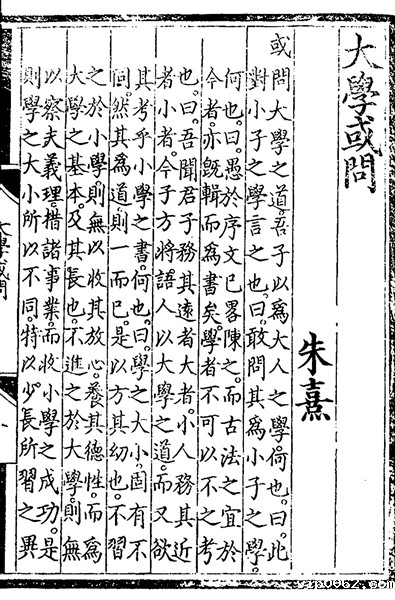 大學或問
朱熹
或問大學之道。吾子以爲大人之學。何也。曰。此
對小子之學言之也。曰。敢問其爲小子之學。
何也。曰。愚於序文已畧陳之。而古法之宜於
今者。亦旣輯而爲書矣。學者不可以不之考
也。曰。吾聞君子務其遠者大者。小人務其近
者小者。今子方將語人以大學之道。而又欲
其考乎小學之書。何也。曰。學之大小。固有不
同。然其爲道則一而已。是以方其幼也。不習
之於小學。則無以收其放心。養其德性。而爲
大學之基本。及其長也。不進之於大學。則無
以察夫義理。措諸事業。而收小學之成功。是
則學之大小所以不同。特以少長所習之異
大學或問